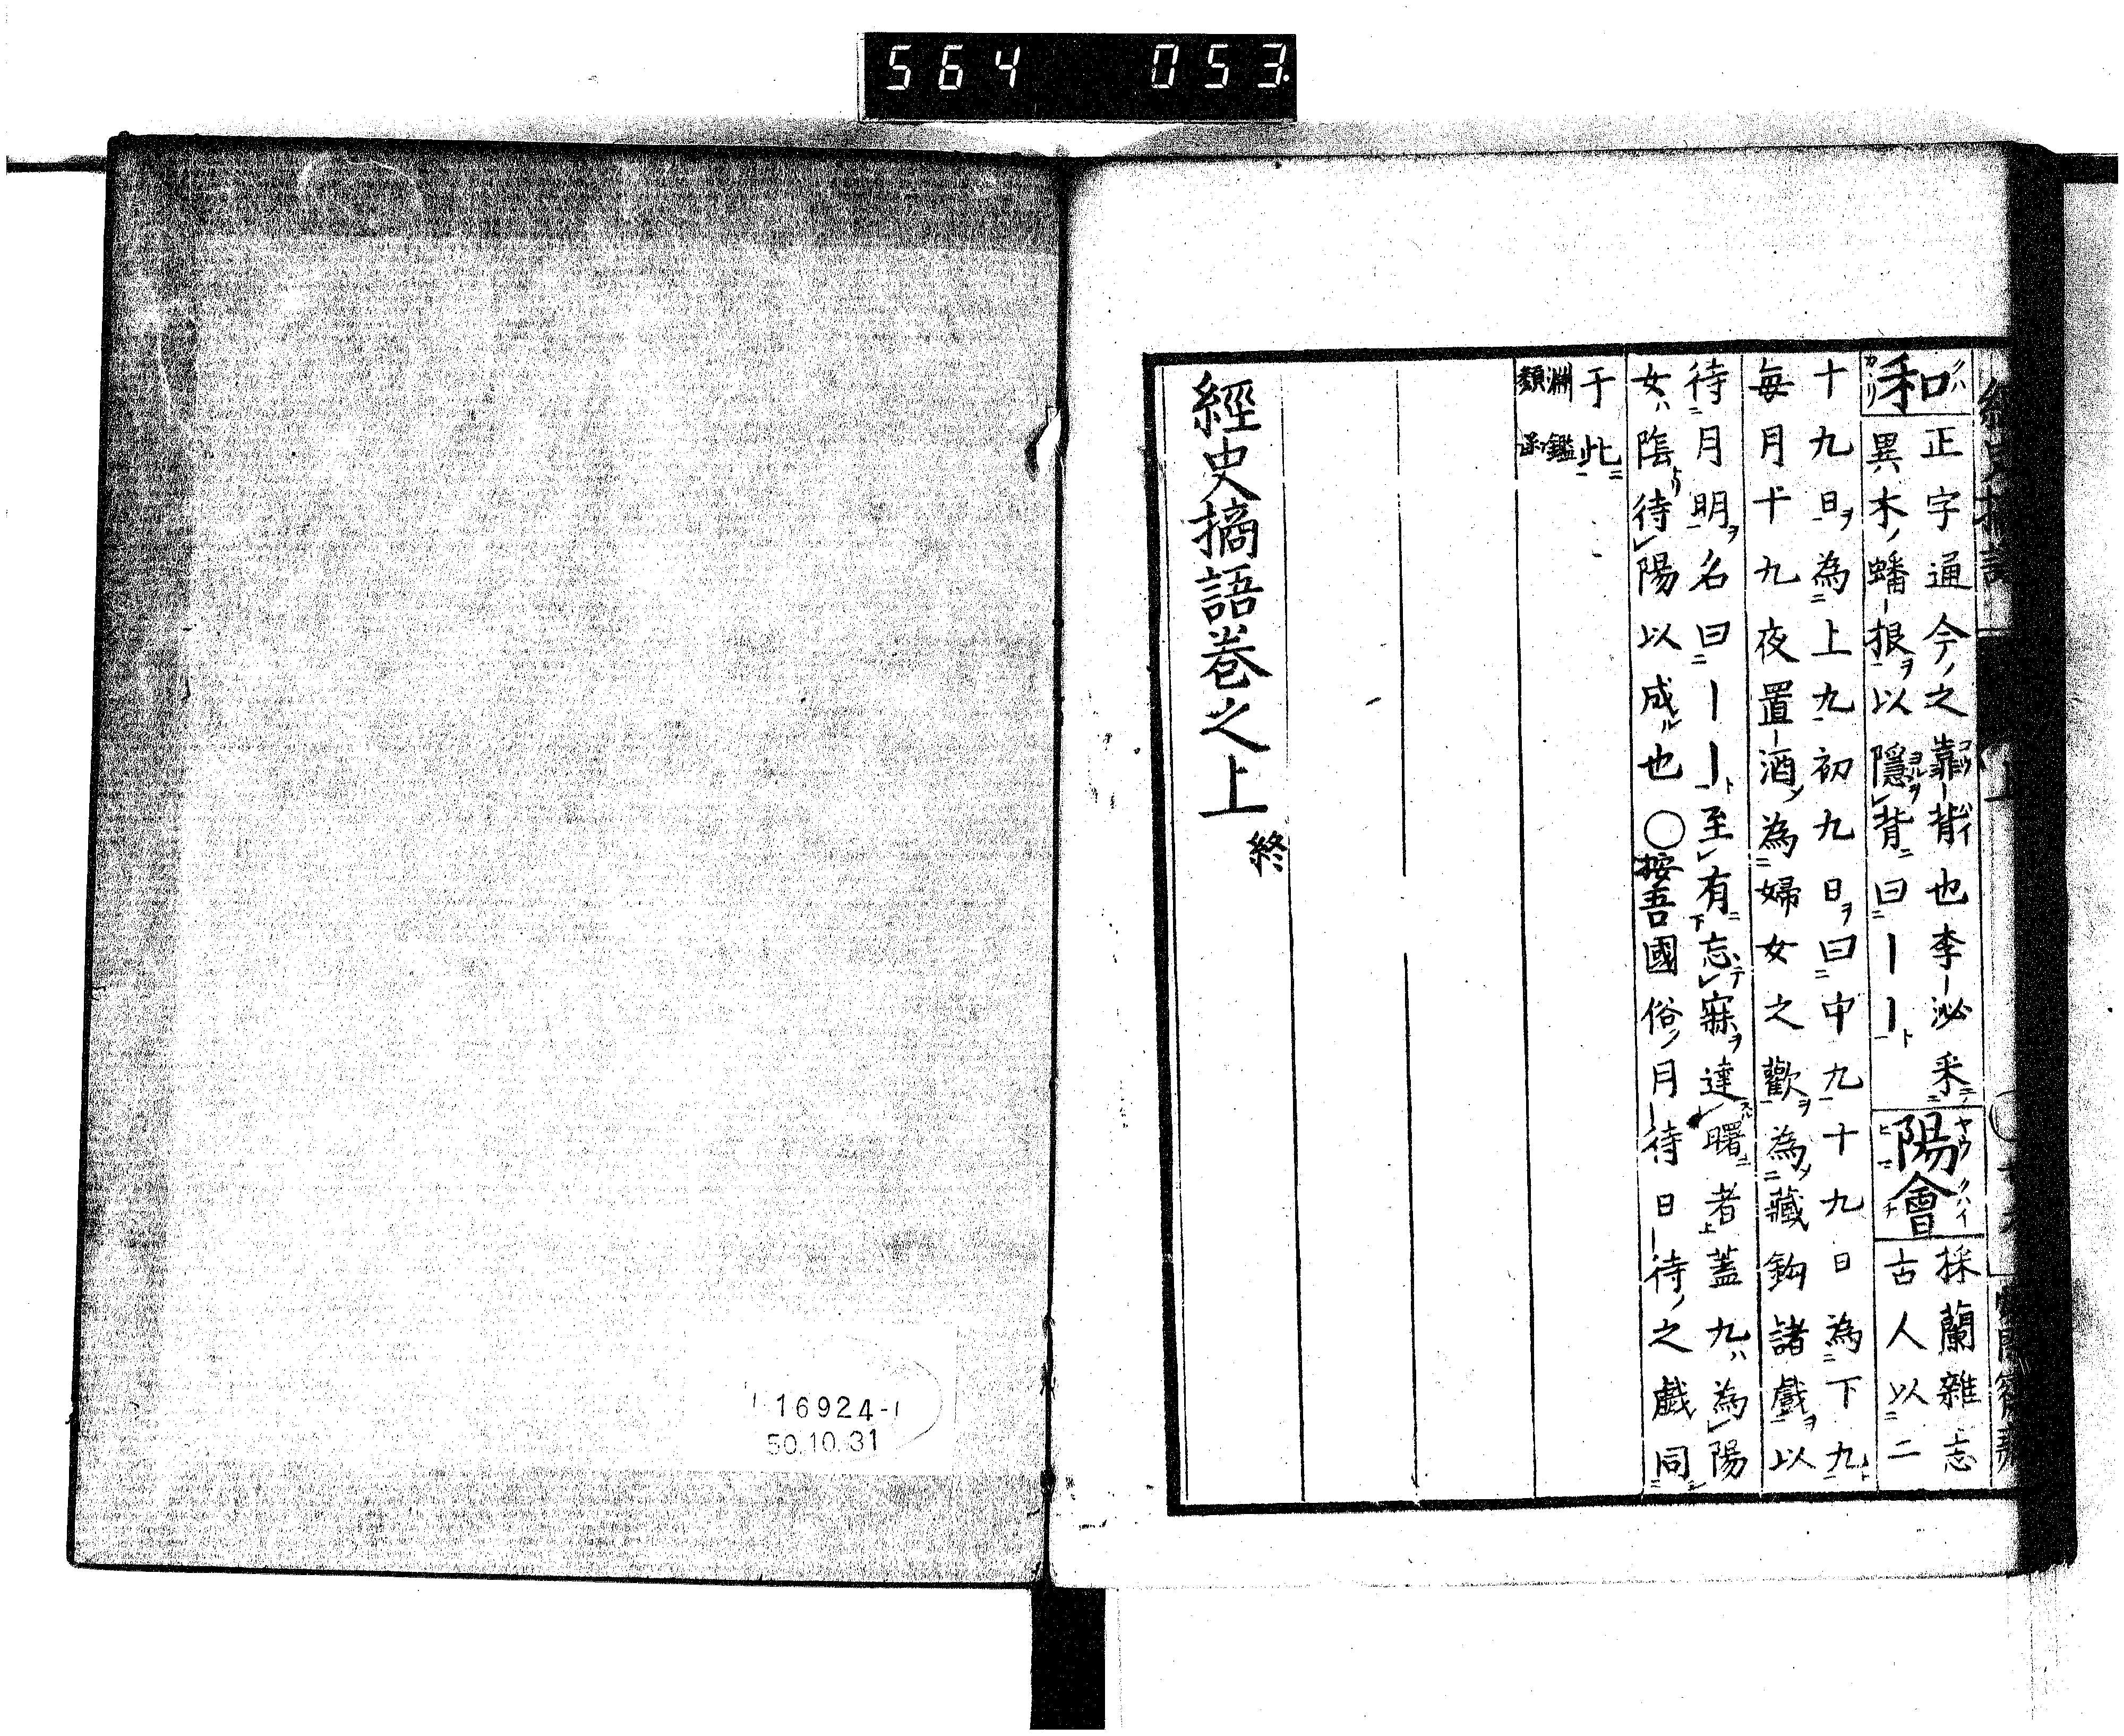 564 053
和 正字通今之靠背也李泌采
異木蟠根以隱背曰〡〡
陽會 採蘭雜志
古人以二
十九日為上九初九日曰中九十九日為下九
每月十九夜置酒為婦女之歡為藏鈎諸戲以
待月明名曰〡〡至有忘寐達曙者蓋九為陽
女陰待陽以成也〇按吾國俗月待日待之戲同
于此
淵鑑
類函
經史摘語卷之上
終
16924-1
50.10.31